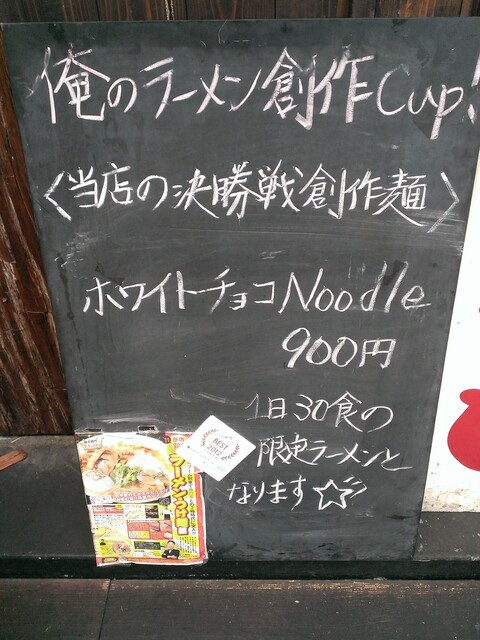 俺のラーメン創作Cup!
〈当店の決勝戦創作麺〉
ホワイトチョコNoodle
900円
1日30食の
限定ラーメンと
なります☆
BEST
2012
ラーメンつけ麺